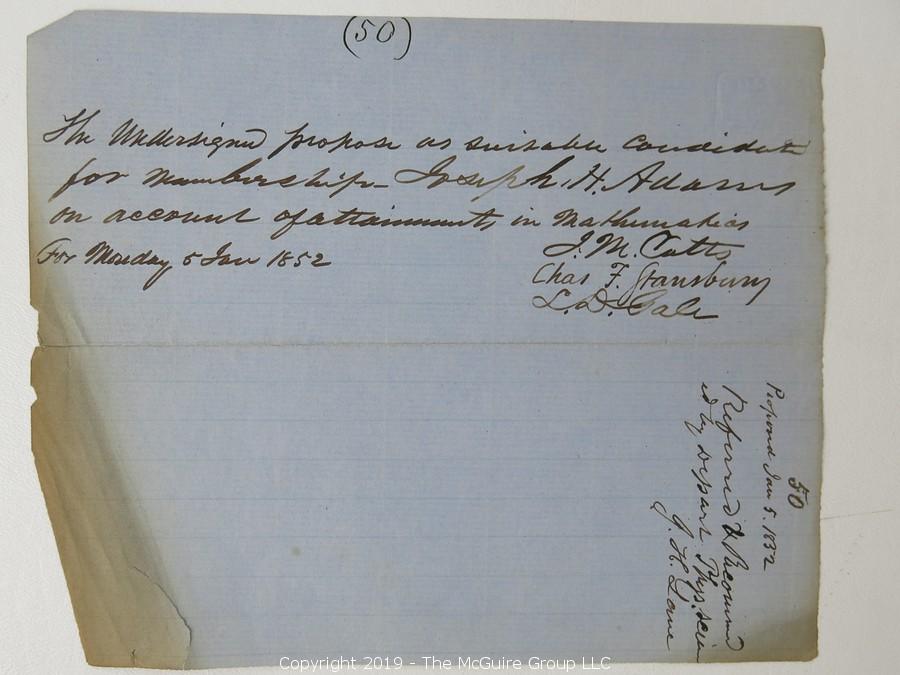 (50)
The Undersigned propose as suitable Candidate
for membership - Joseph. H. Adams
on account of attainments in Mathematics
For Monday 5 Jan 1852
J. M. Cutts
Chas F. Stansbury
L. D. Gale
50
Proposed Jan 5. 1852
Referred & Recomd
ed by Depart Phys. Scien
J. H. Lane
Copyright 2019 - The McGuire Group LLC